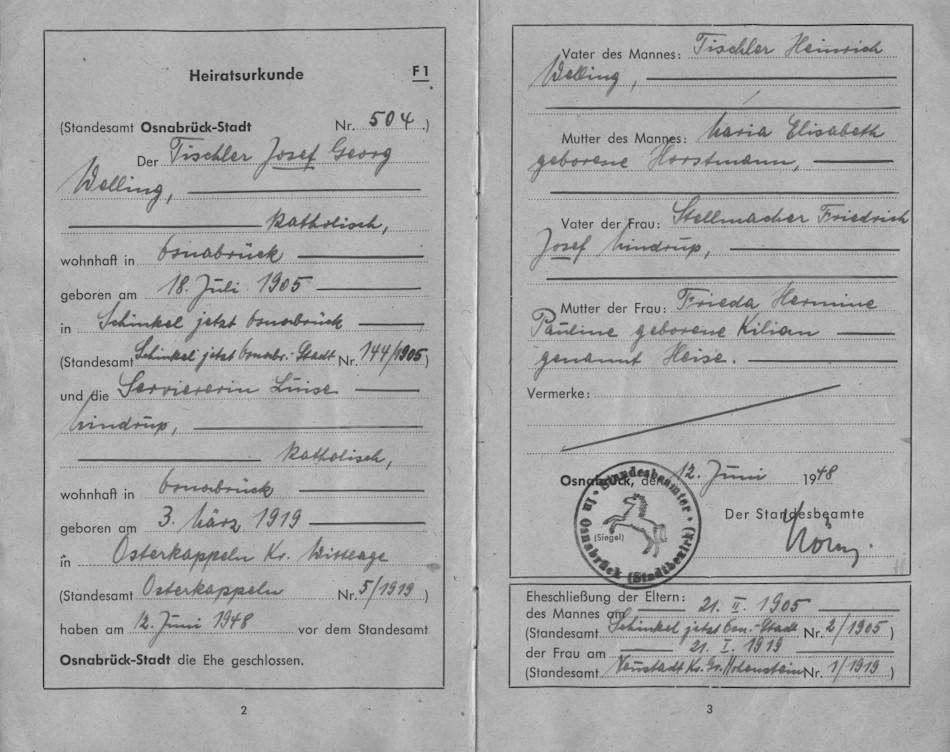 Heiratsurkunde F 1
(Standesamt Osnabrück-Stadt Nr. 504.)
Der Tischler Josef Georg
Welling,
katholisch,
wohnhaft in Osnabrück
geboren am 18. Juli 1905
in Schinkel jetzt Osnabrück
(Standesamt Schinkel jetzt Osnabr.-Stadt Nr. 144/1905)
und die Serviererin Luise
Hindrup,
katholisch,
wohnhaft in Osnabrück
geboren am 3. März 1919
in Osterkappeln Kr. Wittlage
(Standesamt Osterkappeln Nr. 5/1919)
haben am 12. Juni 1948 vor dem Standesamt
Osnabrück-Stadt die Ehe geschlossen.
2
Vater des Mannes: Tischler Heinrich
Welling,
Mutter des Mannes: Maria Elisabeth
geborene Horstmann,
Vater der Frau: Stellmacher Friedrich
Josef Hindrup,
Mutter der Frau: Frieda Hermine
Pauline geborene Kilian
genannt Heise.
Vermerke:
Osnabrück, den 12. Juni 1948
Der Standesbeamte
(Siegel)
Der Standesbeamte
in Osnabrück (Stadtbezirk)
Eheschließung der Eltern:
des Mannes am 21. II. 1905
(Standesamt Schinkel jetzt Osn.-Stadt Nr. 2/1905)
der Frau am 21. I. 1919
(Standesamt Neustadt Kr. Gr. Hohenstein Nr. 1/1919)
3